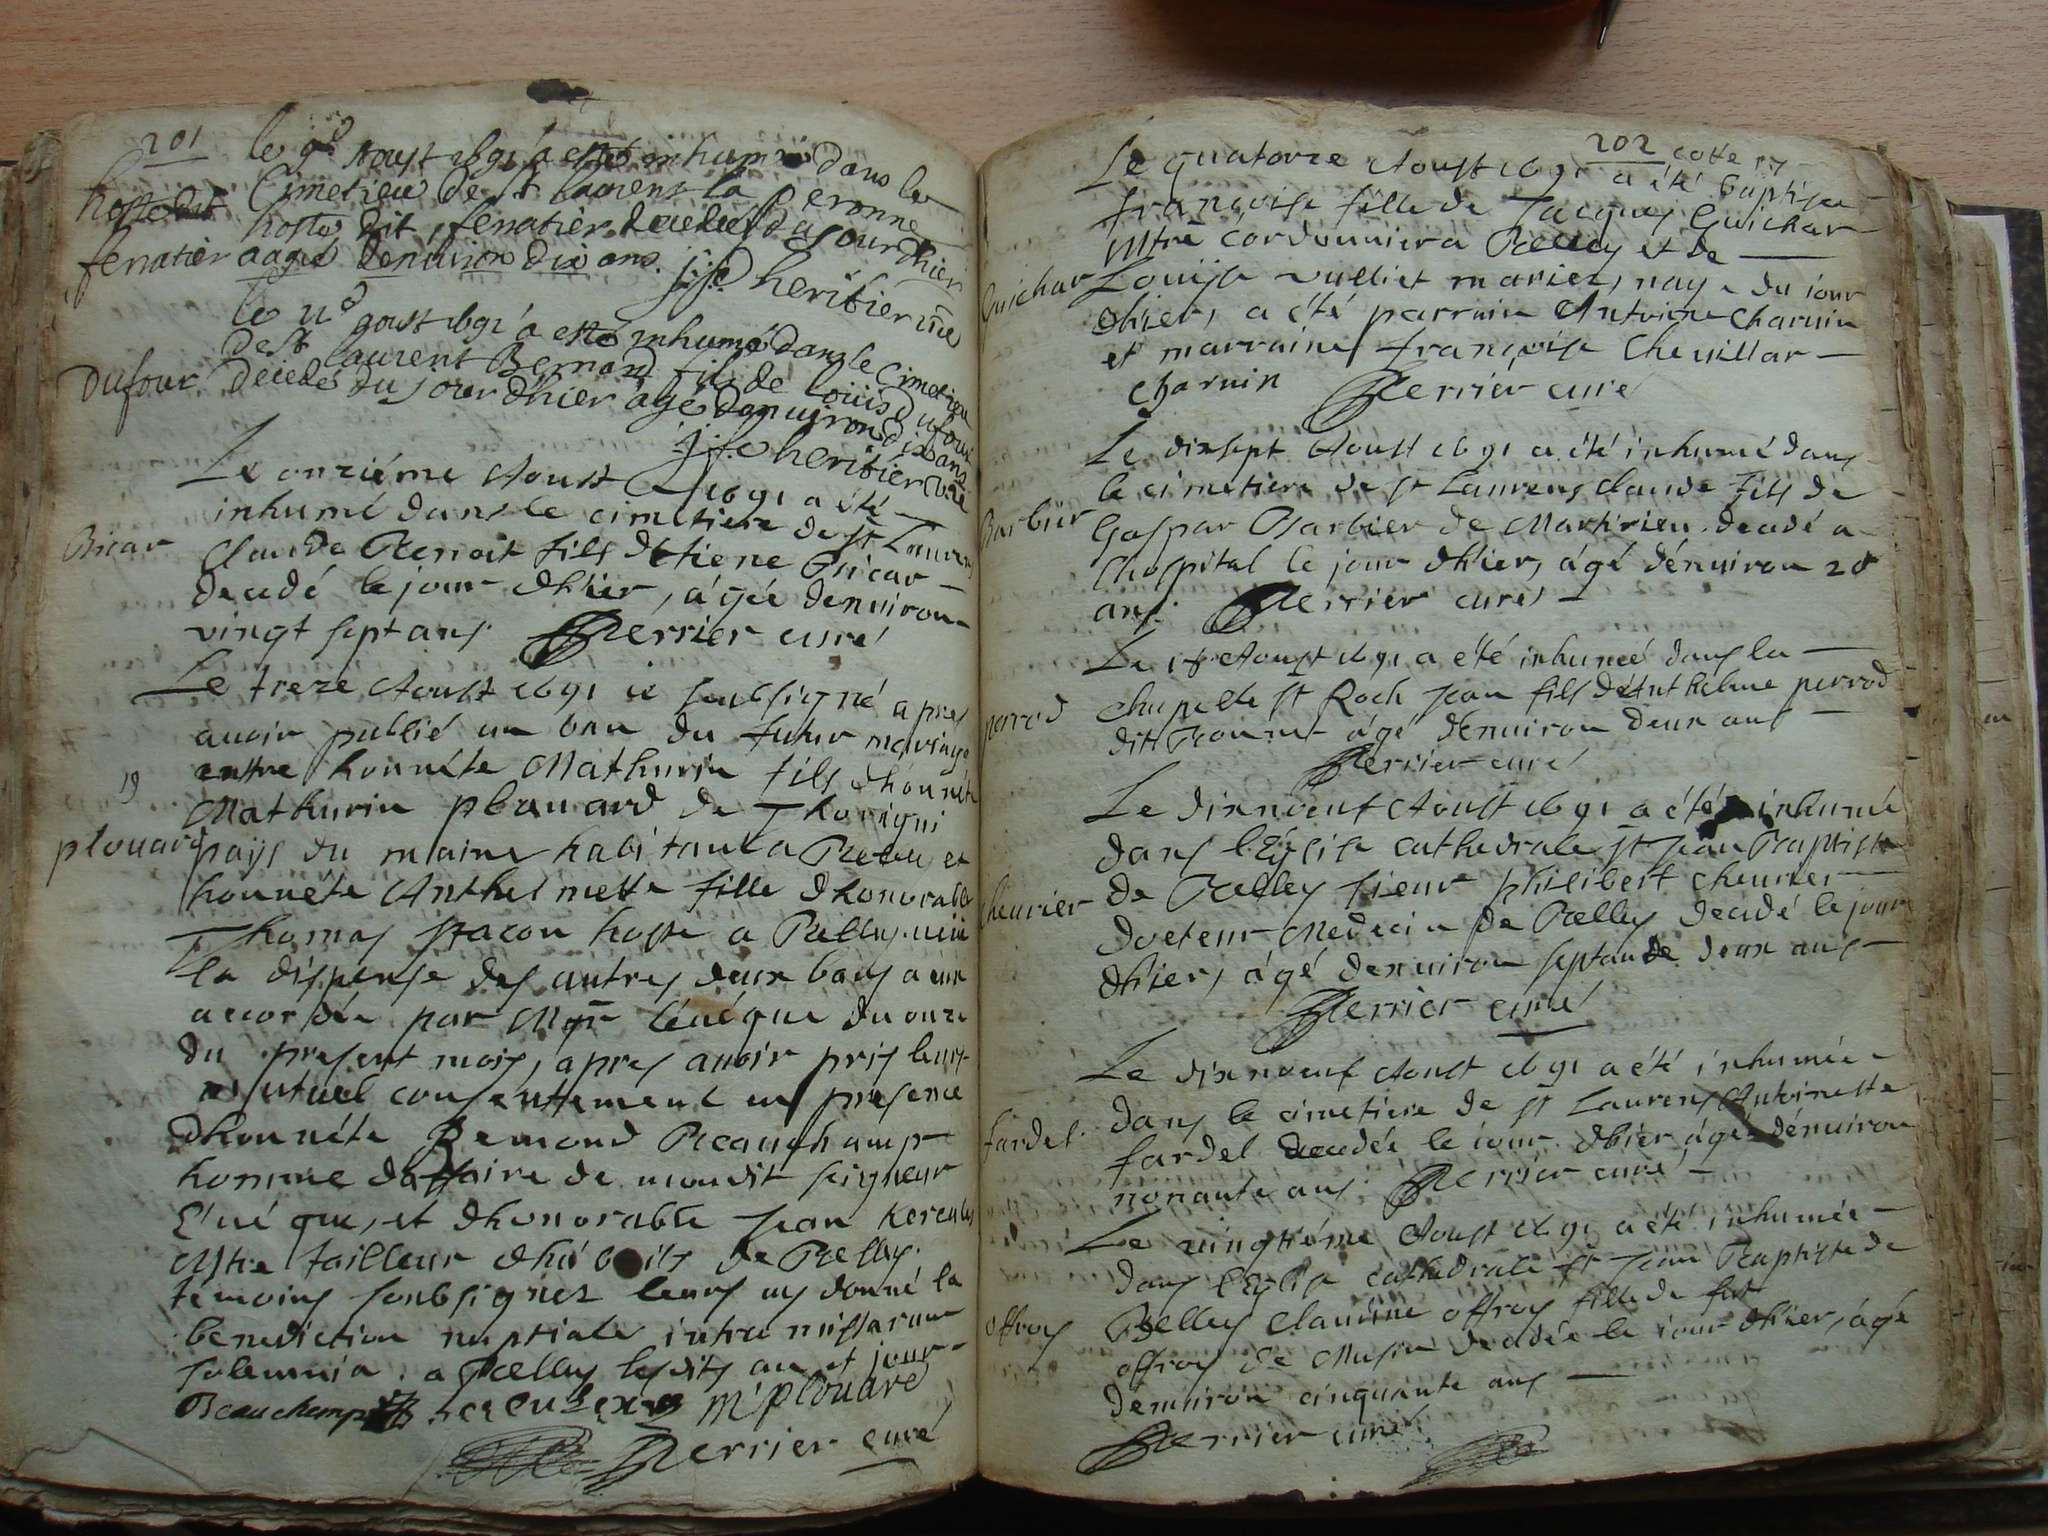 201
le 9e aoust 1691 a esté inhumé dans le
Cimetiere de st laurens la peronne
hoste dit hoste dit ferratier decedé du jour dhier
ferratier aagé denuiron dix ans. j:f:e heritiér vic̃e
le 11e aoust 1691 a esté inhumé dans le Cimetiere
De st laurent Bernard fils de louis Dufour
Dufour decedé du jour dhier agé denuiron dix ans
j:f:e heritiér vic̃e
Le onziéme Aoust 1691 a été
inhumé dans le cimetiere de st Laurens
Bicar Claude Benoit fils détiene Bicar
decedé le jour dhier, ágée denuiron
vingt sept ans. Perrier curé
Le treze Aoust 1691 ie soubsigné apres
auoir publié un ban du futur mariage
entre honnéte Mathurin fils dhonnéte
19 Mathurin plouuard de Thorigni
plouard pays du maine habitant a Belley et
honnéte Anthelmette fille dhonorable
Thomas Stacon hoste a Belley ueu
la dispense des autres deux bans a eux
accordée par Mgr léuéque du onze
du present mois, apres auoir pris leur
mutuel consentement en presence
dhonnéte Remond Beauchamp
homme daffaire de mondit seigneur
L'éué que, et dhonorable Jean hercules
Mtre tailleur dhábits de Belley
témoins soubsignez leurs ay donné la
benediction nuptiale intra missarum
solemnia. a Belley lesdits an et jour
Beauchamp m plouard
Perrier curé
202 cotte
Le quatorze Aoust 1691 a été baptisée
françoise fille de Jacques Guichar
Mtre cordonnier a Belley et de
Guichar Louise vulliet mariez, naye du jour
dhier, a été parrain Antoine Charuin
et marraine françoise Cheuillar
charuin Perrier curé
Le dixsept Aoust 1691 a été inhumé dans
le cimetiere de st Laurens claude fils de
Barbier Gaspar Barbier de Martirieu decedé a
lhospital le jour dhier, ágé dénuiron 20
ans. Perrier curé
Le 18 Aoust 1691 a été inhumée dans la
perrod chapelle st Roch Jean fils dAnthelme perrod
dit ágé denuiron deux ans
Perrier curé
Le dixneuf Aoust 1691 a été inhumé
dans l'Eglise cathedrale st Jean Baptiste
Cheurier de Belley sieur philibert cheurier
docteur Medecin de Belley decedé le jour
dhier, ágé denuiron septante deux ans
Perrier curé
Le dixneuf Aoust 1691 a été inhumée
dans le cimetiere de st Laurens Antoinette
fardel. fardel decedée le iour dhier ágée dénuiron
nonante ans. Perrier curé
Le vingtiéme Aoust 1691 a été inhumée
dans l'Eglise cathedrale st Jean Baptiste de
offroy Belley Claudine offroy fille de fut
offroy de Musin decedée le iour dhier, ágé
denuiron cinquante ans
Perrier curé